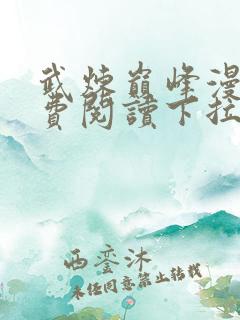 武炼巅峰漫
費閱讀下拉
西銮沐
未经同意禁止转载